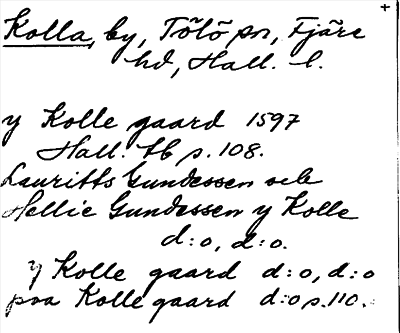 Kolla, by, Tölö sn, Fjäre
hd, Hall. l.
y Kolle gaard 1597
Hall. tb p. 108.
Lauritts Gundessen och
Hellie Gundessen y Kolle
d:o, d:o.
y Kolle gaard d:o, d:o
paa Kolle gaard d:o p. 110.